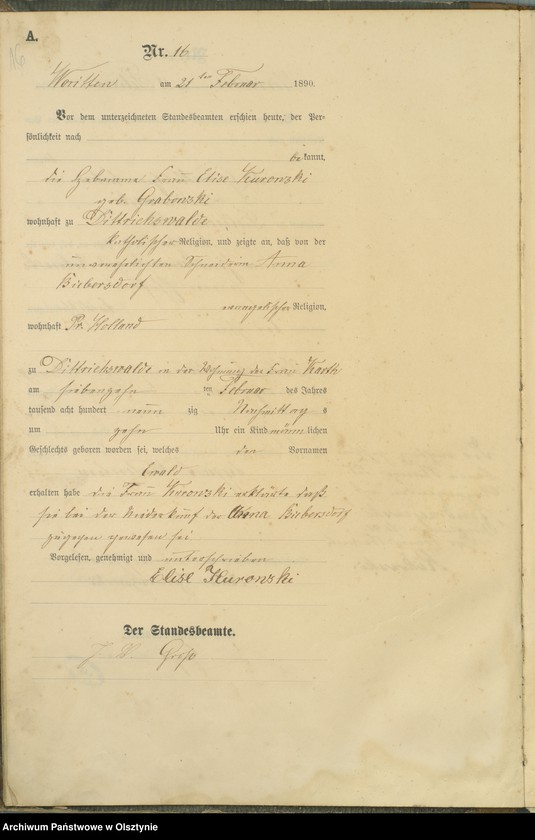 A.
16
Nr. 16
Woritten am 21ten Februar 1890.
Vor dem unterzeichneten Standesbeamten erschien heute, der Per-
sönlichkeit nach
be kannt,
die Hebamme Frau Elise Kurowski
geb. Grabowski
wohnhaft zu Dittrichswalde
katholischer Religion, und zeigte an, daß von der
unverehelichten Schneiderin Anna
Biebersdorf
evangelischer Religion,
wohnhaft Pr. Holland
zu Dittrichswalde in der Wohnung der Frau Barth
am siebenzehn ten Februar des Jahres
tausend acht hundert neun zig Nachmittags
um zehn Uhr ein Kind männlichen
Geschlechts geboren worden sei, welches den Vornamen
Ewald
erhalten habe die Frau Kurowski erklärte daß
sie bei der Niederkunft der Anna Biebersdorf
zugegen gewesen sei
Vorgelesen, genehmigt und unterschrieben
Elise Kurowski
Der Standesbeamte.
J. V. Groß
Archiwum Państwowe w Olsztynie